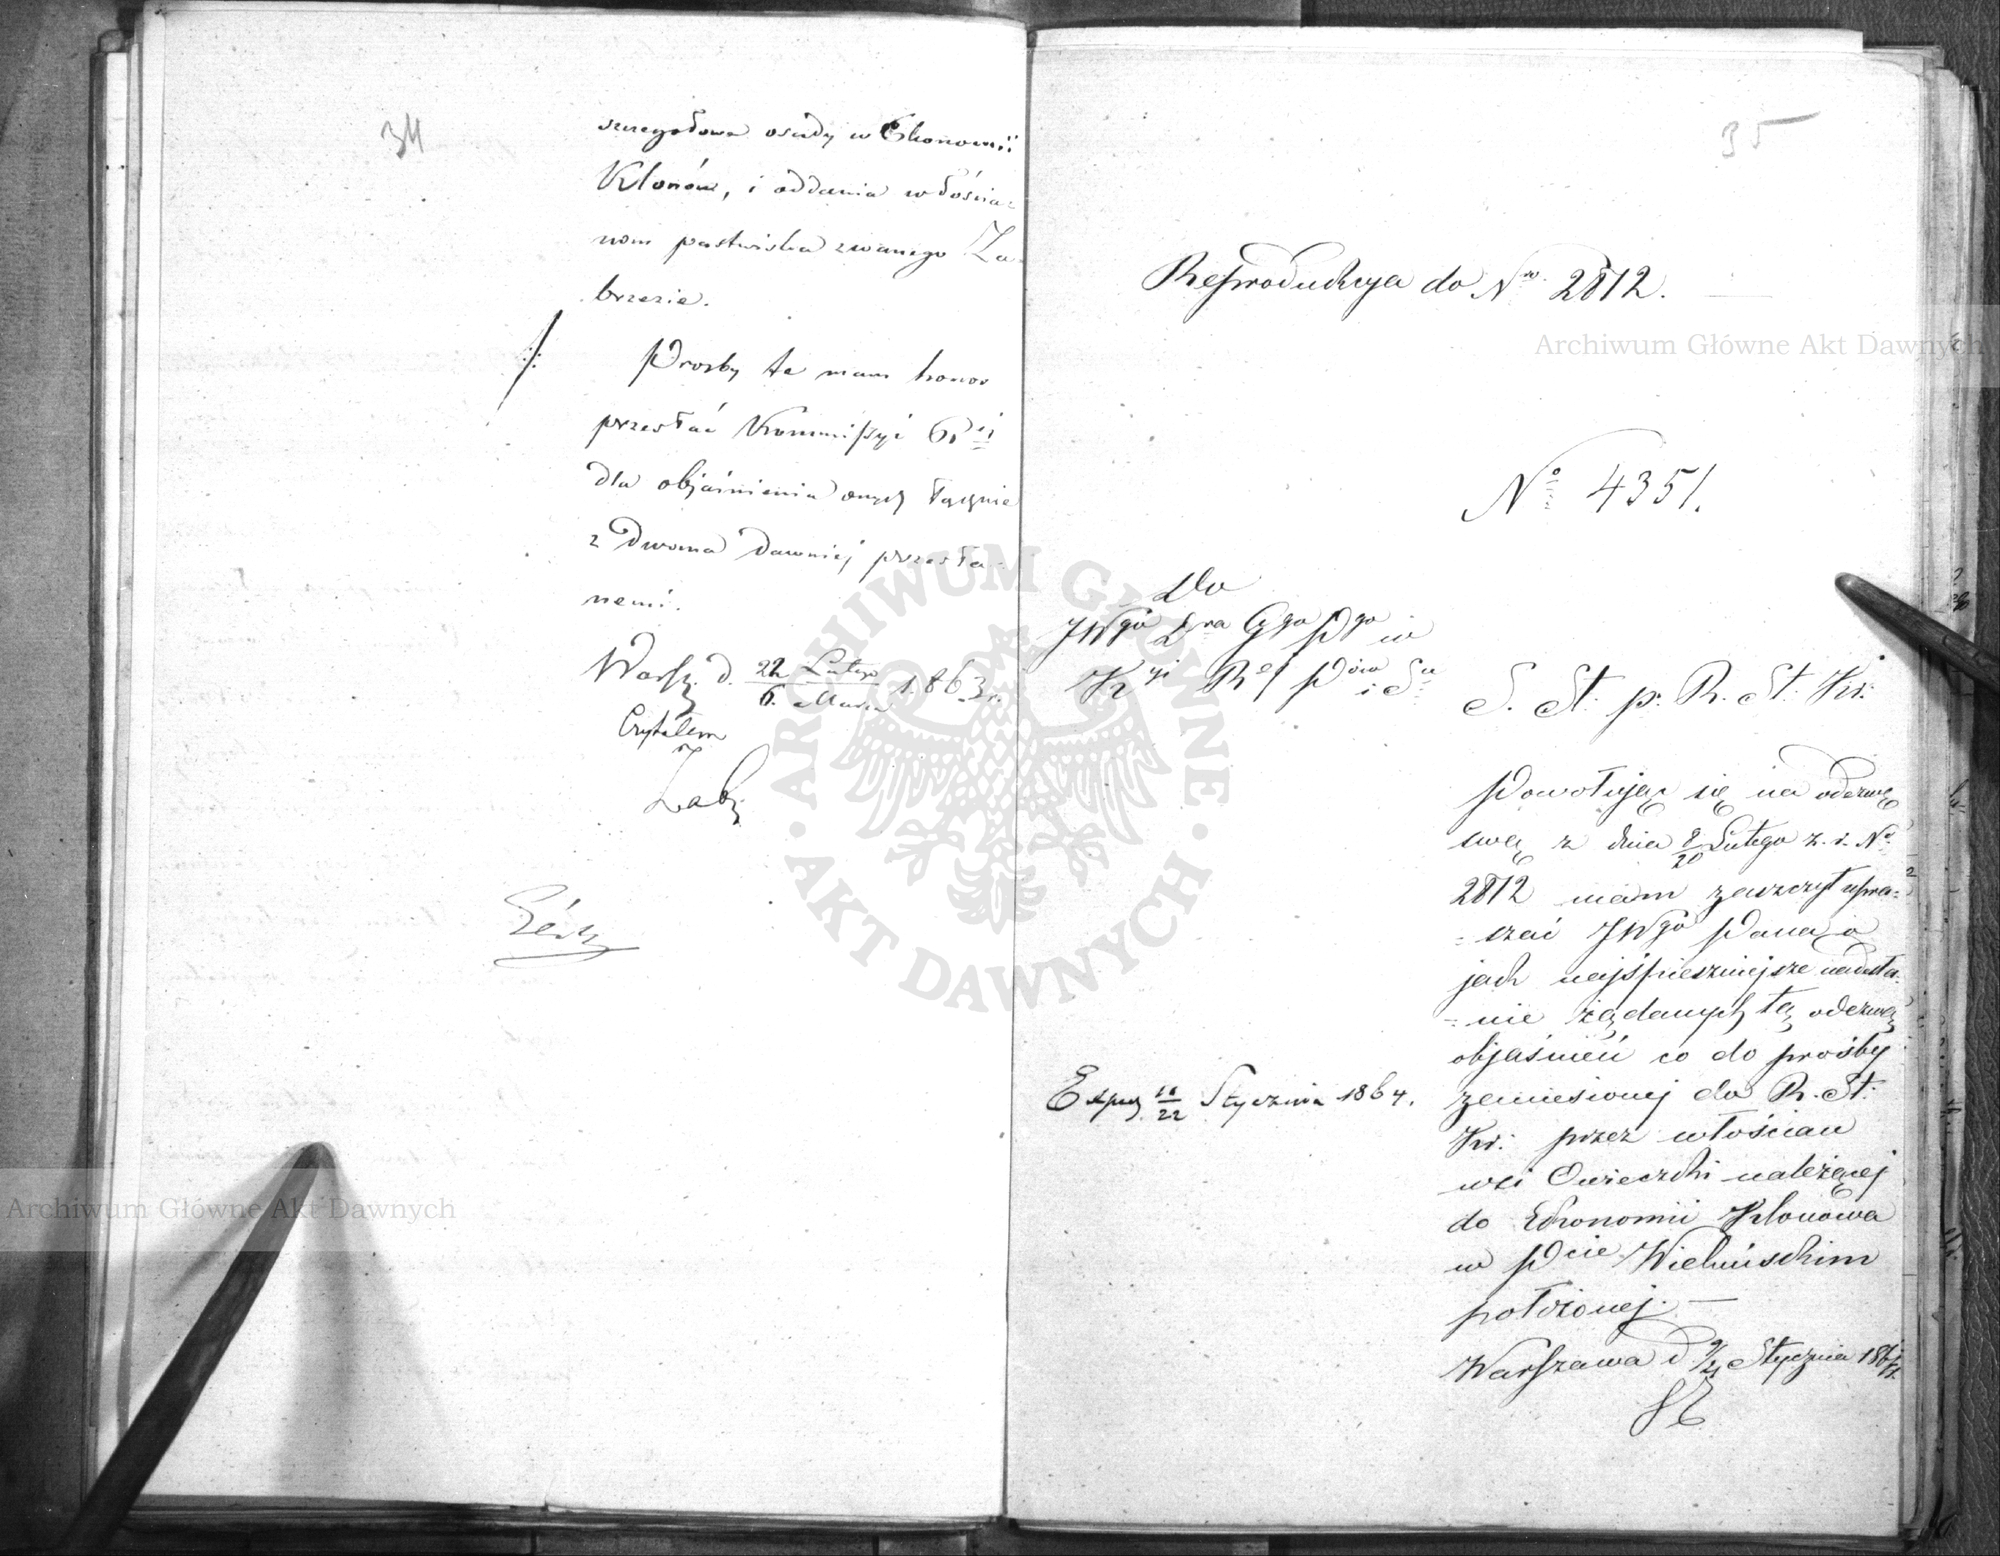 34
szczegółowa osady w Ekonomii
Klonów, i oddania włościa-
nom pastwiska zwanego Za-
brzezie.
Prośby te mam honor
przesłać Kommissyi
dla objaśnienia onych łącznie
z dwoma dawniej przesła-
nemi.
Warsz. d. 22 Lutego / 6 Marca 1863 r.
Czytałem
35
Reprodukcya do Nru 2812.
No 4351.
Do
JWgo Dra Ggo Pgo w
Kyi
S. St. p. R. St. Kr.
Expd. 10/22 Stycznia 1864.
Powołując się na odezwę
swą z dnia 8/20 Lutego z. r. No
2812 mam zaszczyt upra-
-szać JWgo Pana o
jak najśpieszniejsze nadesła-
-nie żądanych tą odezwą
objaśnień co do prośby
zaniesionej do R. St.
Kr. przez włościan
wsi Owieczki należącej
do Ekonomii Klonowa
w Pcie Wieluńskim
położonej. —
Warszawa d 9/21 Stycznia 1864 r.
Archiwum Główne Akt Dawnych
Archiwum Główne Akt Dawnych
ARCHIWUM GŁÓWNE · AKT DAWNYCH ·